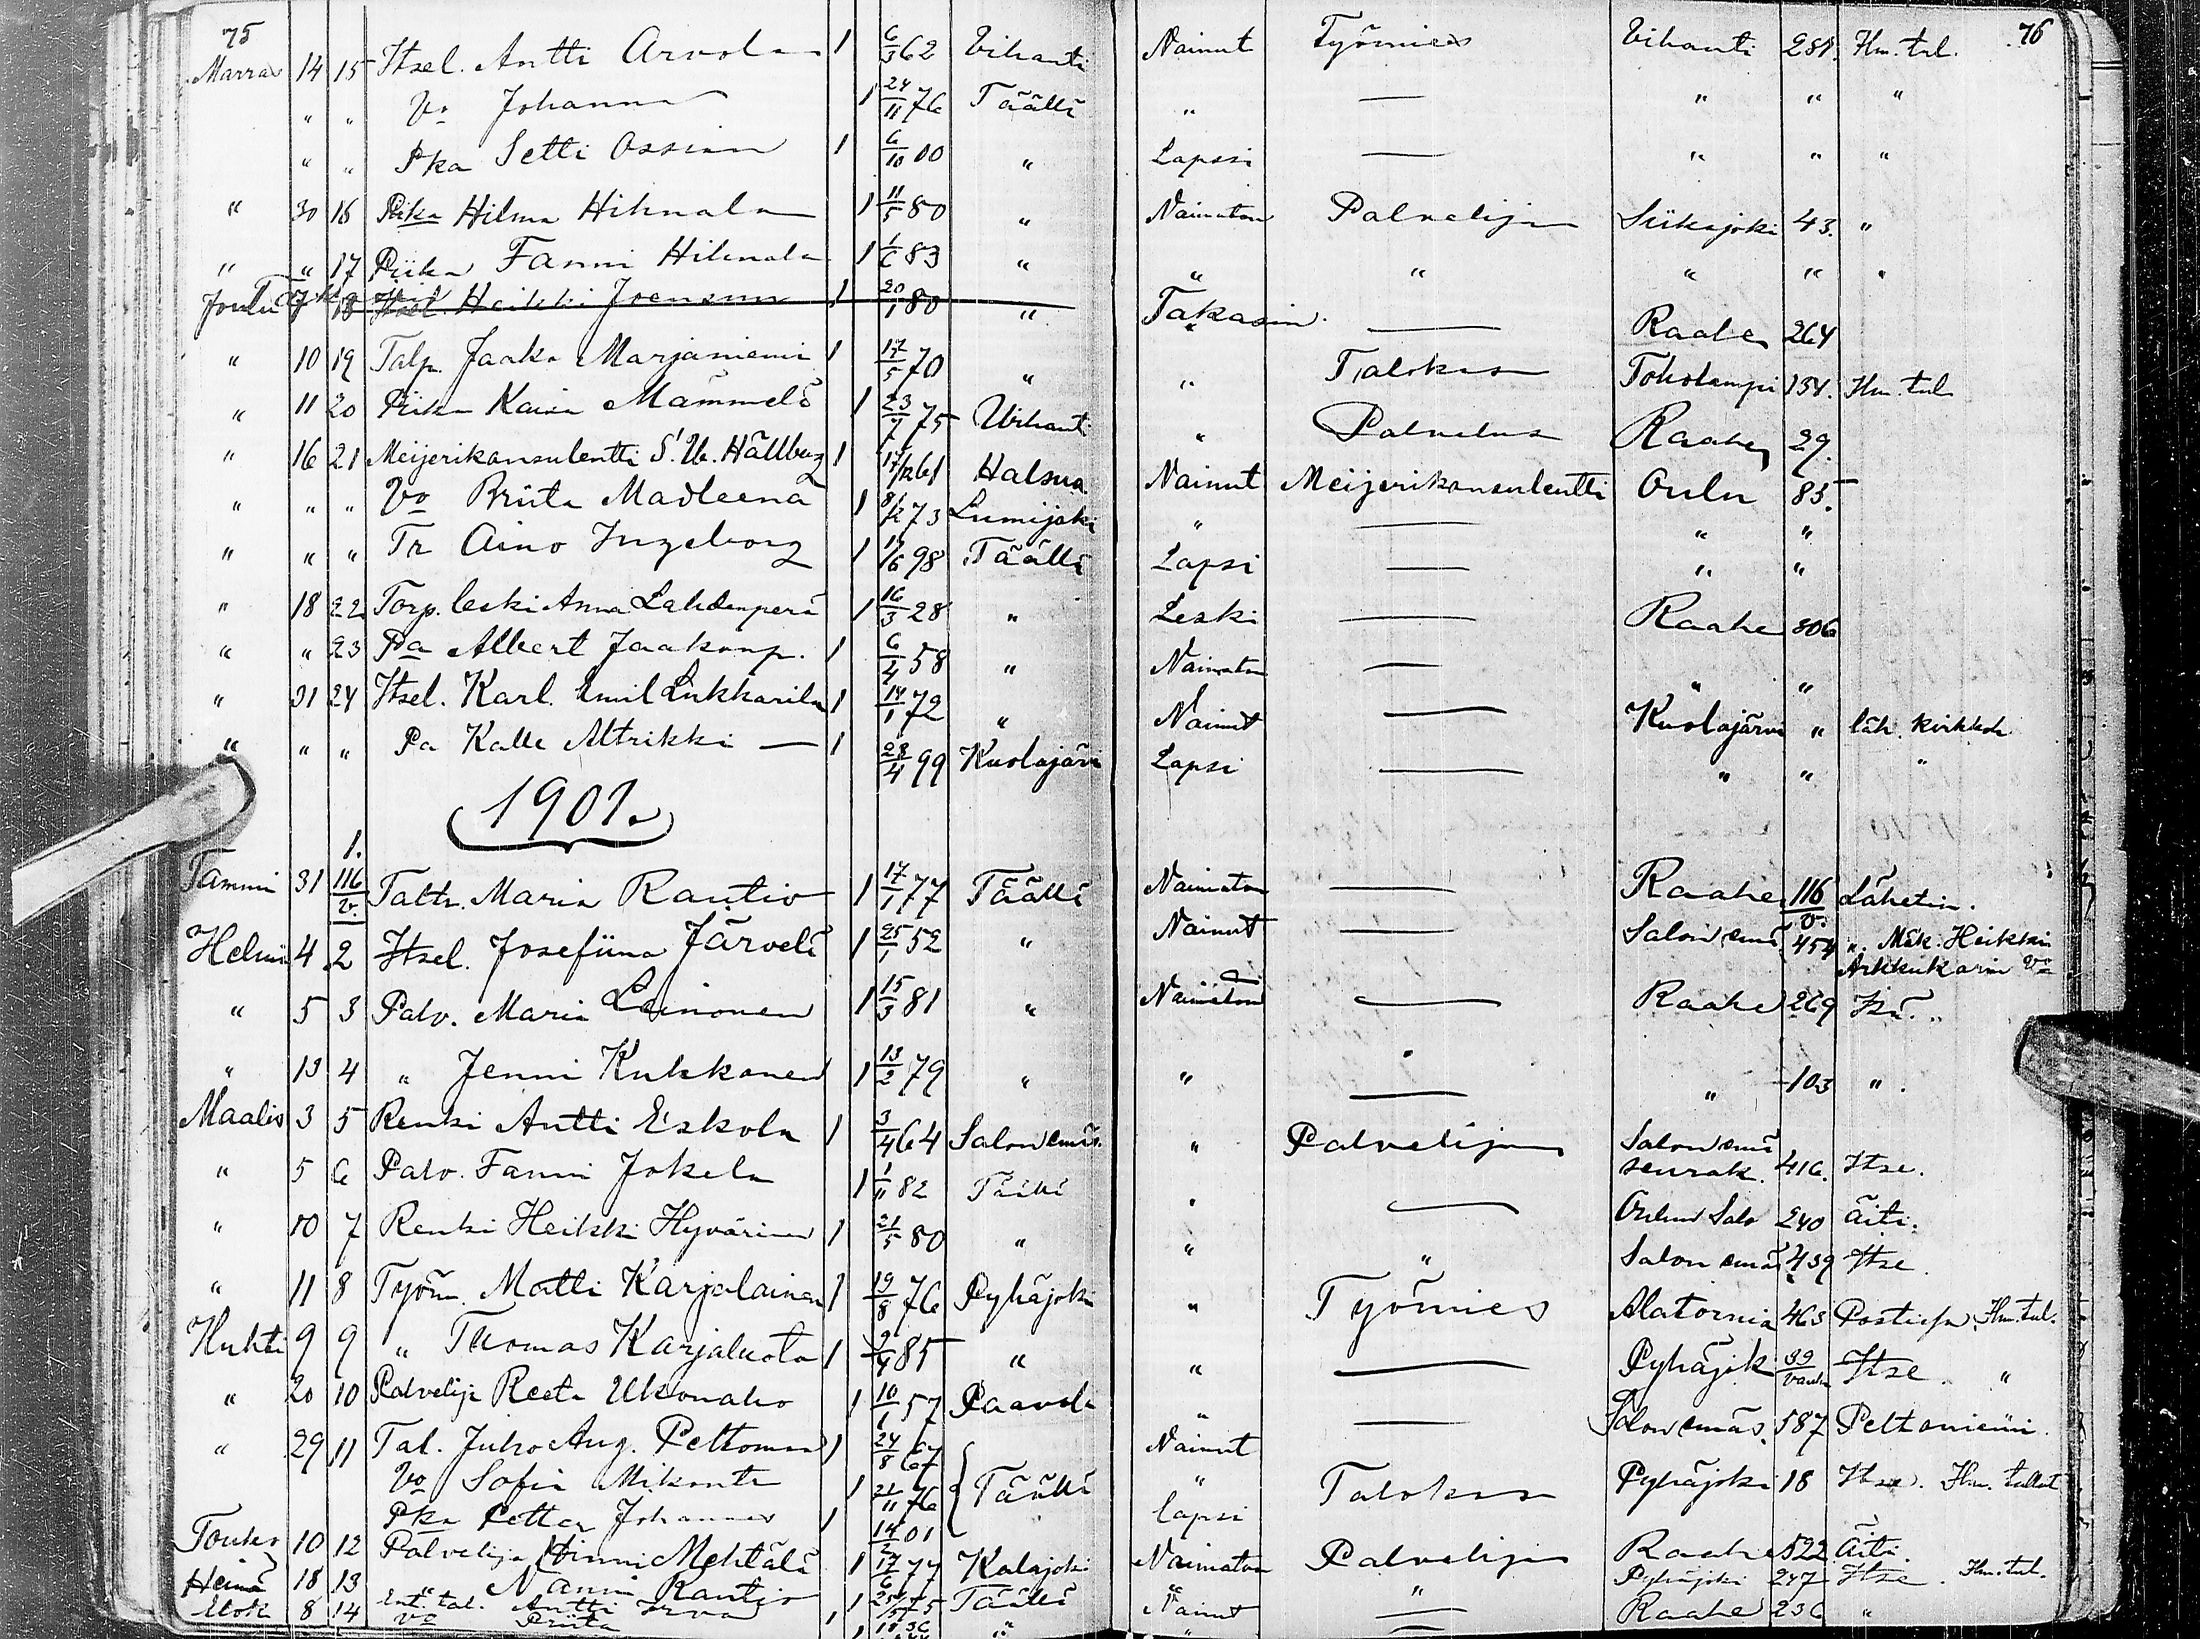 75 76
Marras 14 15 Itsel. Antti Arvola 1 6/3 62 Vihanti Nainut Työmies Vihanti 281. Hm. tul.
„ „ Vo Johanna 1 24/11 76 Täällä „ — „ „ „
„ „ Pka Setti Ossian 1 6/10 00 „ Lapsi — „ „ „
„ 30 16 Piika Hilma Hihnala 1 11/5 80 „ Naimaton Palvelija Siikajoki 43. „
„ „ 17 Piika Fanni Hihnala 1 1/6 83 „ „ „ „ „ „
Joulu 7 18 Itsel. Heikki Joensuu 1 20/1 80 „ Takasin. — Raahe 264
„ 10 19 Talp. Jaako Marjaniemi 1 17/5 70 „ „ Talokas Toholampi 134. Hm. tul.
„ 11 20 Piika Kaisa Mämmelä 1 23/7 75 Vihanti „ Palvelus Raahe 29.
„ 16 21 Meijerikonsulentti S. W. Hällberg 1 17/12 61 Halsua Nainut Meijerikonsulentti Oulu 85.
„ „ „ Vo Briita Madleena 1 8/12 73 Lumijoki „ — „ „
„ „ „ Tr Aino Ingeborg 1 98 Täällä Lapsi — „ „
„ 18 22 Torp. leski Anna Lahdenperä 1 16/3 28 „ Leski — Raahe 306
„ „ 23 Pa Albert Jaakonp. 1 6/4 58 „ Naimaton — „ „
„ 31 24 Itsel. Karl. Emil Linkkarila 1 14/1 72 „ Nainut — Kuolajärvi „ läh. kirkkoh
„ „ „ Pa Kalle Altrikki — 1 28/4 99 Kuolajärvi Lapsi — „ „ „
1901.
1.
Tammi 31 116/v. Taltr. Maria Rautio 1 17/1 77 Täällä Naimaton — Raahe 116/v. Lähetin.
Helmi 4 2 Itsel. Josefiina Järvelä 1 25/1 52 „ Nainut — Salon emä 454 „. Mäk. Heikkin
Arkkukarin Vo
„ 5 3 Palv. Maria Leinonen 1 15/3 81 „ Naimaton — Raahe 269
„ 13 4 „ Jenni Kukkonen 1 13/2 79 „ „ — „ 103 „.
Maalis 3 5 Renki Antti Eskola 1 3/4 64 Salon emäs. „ Palvelija Salon emä
seurak. 416. Itse.
„ 5 6 Palv. Fanni Jokela 1 1/11 82 Täällä „ — Oulun Salo 240 Äiti.
„ 10 7 Renki Heikki Hyvärinen 1 21/5 80 „ „ „ Salon emä 439 Itse.
„ 11 8 Työm. Matti Karjalainen 1 19/8 76 Pyhäjoki „ Työmies Alatornia 463 Hm. tul.
Huhti 9 9 „ Thomas Karjaluoto 1 85 „ „ — Pyhäjok 39 Itse. „
„ 20 10 Palvelija Reeta Ukonaho 1 10/1 57 Paavola „ — Salon emäs. 587 Peltoniemi.
„ 29 11 Tal. Juho Aug. Peltomaa 1 24/8 67 Täällä Nainut Talokas Pyhäjoki 18 Itse. Hm. tullut
Vo Sofia Mikontr 1 21/11 76 „
Pka Petter Johannes 1 14/2 01 lapsi
Touko 10 12 Palvelija Hinni Mehtälä 1 17/6 77 Kalajoki Naimaton Palvelija Raahe 522 Äiti.
Heinä 18 13 „ Nanni Rautio 1 75 Täällä „ „ Pyhäjoki 247 Itse. Hm. tul.
Elok 8 14 Ent. tal. Antti 1 „ Nainut — Raahe 236 „
Vo Priita 1 „ —